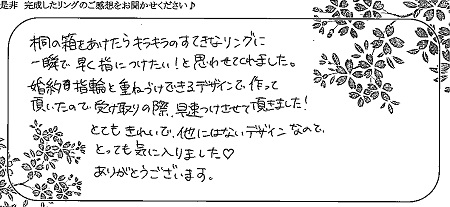 是非 完成したリングのご感想をお聞かせください♪
桐の箱をあけたらキラキラのすてきなリングに
一瞬で早く指につけたい!と思わせてくれました。
婚約指輪と重ねづけできるデザインで作って
頂いたので、受け取りの際、早速つけさせて頂きました!
とてもきれいで、他にはないデザインなので、
とっても気に入りました♡
ありがとうございます。